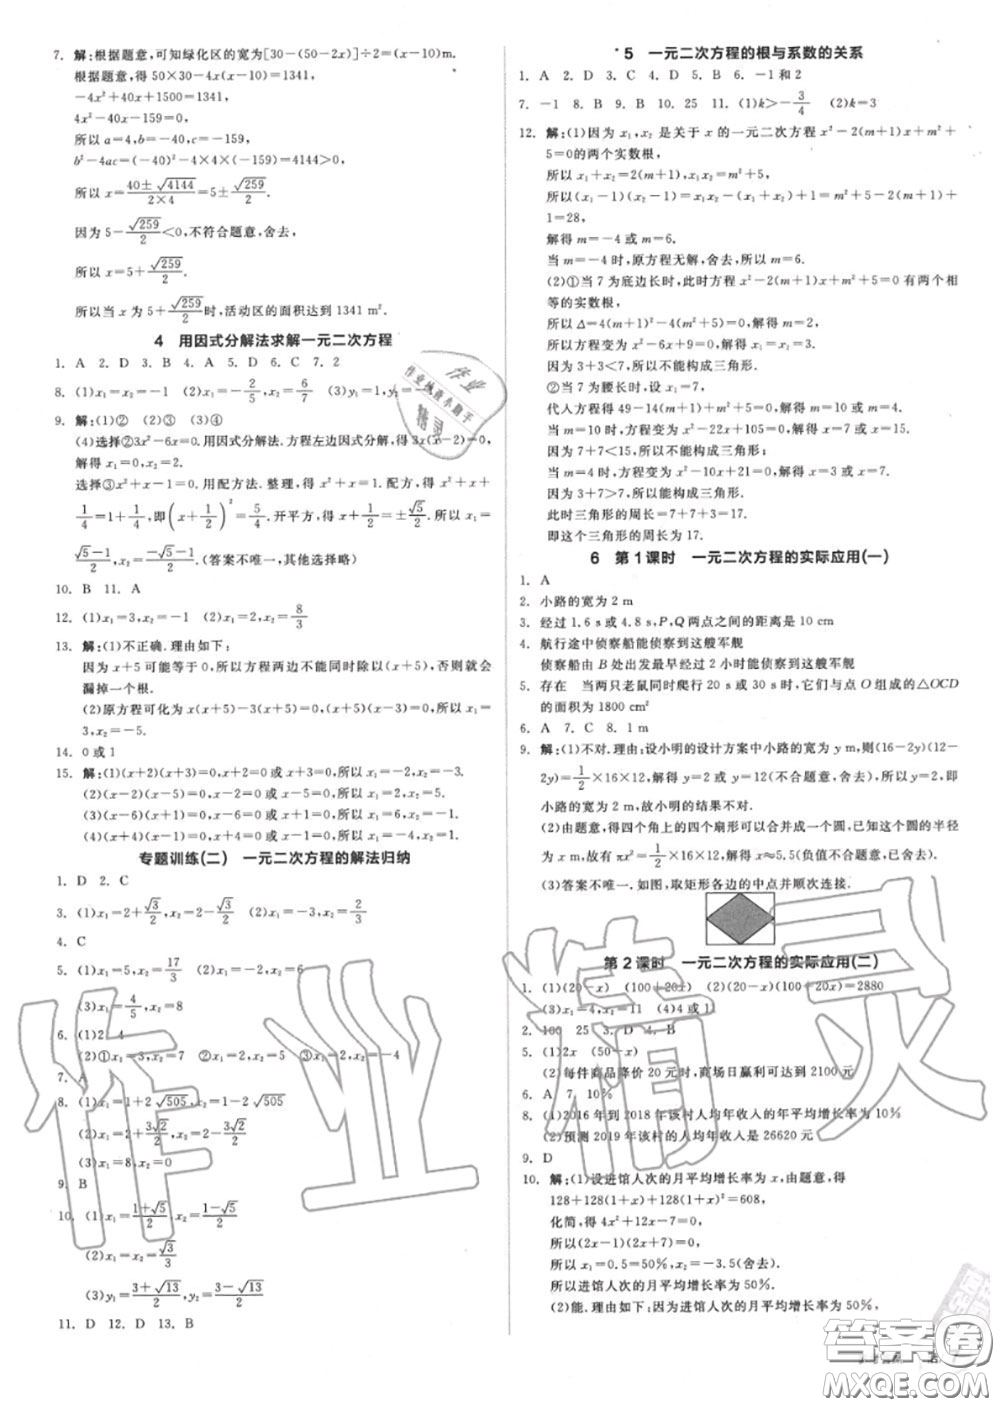 7. 解:根据题意,可知绿化区的宽为[30-(50-2x)]÷2=(x-10)m.
根据题意,得 50×30-4x(x-10)=1341,
-4x²+40x+1500=1341,
4x²-40x-159=0,
所以 a=4,b=-40,c=-159,
b²-4ac=(-40)²-4×4×(-159)=4144>0,
所以 x=(40±√4144)/(2×4)=5±√259/2.
因为 5-√259/2<0,不符合题意,舍去,
所以 x=5+√259/2.
所以当 x 为 5+√259/2时,活动区的面积达到 1341 m².
4 用因式分解法求解一元二次方程
1. A 2. D 3. B 4. A 5. D 6. C 7. 2
8. (1)x₁=0,x₂=2 (2)x₁=-2/5,x₂=6/7 (3)y₁=1,y₂=
9. 解:(1)② (2)③ (3)④
(4)选择②3x²-6x=0. 用因式分解法. 方程左边因式分解,得 3x(x-2)=0,
解得 x₁=0,x₂=2.
选择③x²+x-1=0. 用配方法. 整理,得 x²+x=1. 配方,得 x²+x+
1/4=1+1/4,即(x+1/2)²=5/4. 开平方,得 x+1/2=±√5/2. 所以 x₁=
(√5-1)/2,x₂=(-√5-1)/2. (答案不唯一,其他选择略)
10. B 11. A
12. (1)x₁=3,x₂=-1 (2)x₁=0,x₂=8/3
13. 解:(1)不正确. 理由如下:
因为 x+5 可能等于 0,所以方程两边不能同时除以(x+5),否则就会
漏掉一个根.
(2)原方程可化为 x(x+5)-3(x+5)=0,(x-3)(x+5)=0,所以 x₁=
3,x₂=-5.
14. 0 或 1
15. 解:(1)(x+2)(x+3)=0,x+2=0 或 x+3=0,所以 x₁=-2,x₂=-3.
(2)(x-2)(x-5)=0,x-2=0 或 x-5=0,所以 x₁=2,x₂=5.
(3)(x-6)(x+1)=0,x-6=0 或 x+1=0,所以 x₁=6,x₂=-1.
(4)(x+4)(x-1)=0,x+4=0 或 x-1=0,所以 x₁=-4,x₂=1.
专题训练(二) 一元二次方程的解法归纳
1. D 2. C
3. (1)x₁=2+√3/2,x₂=2-√3/2 (2)x₁=0,x₂=2/3
4. C
5. (1)x₁=5,x₂=17/3 (2)x₁=1,x₂=9
(3)x₁=4/5,x₂=8
6. (1)2 4
(2)①x₁=3,x₂=7 ②x₁=-1,x₂=3 ③x₁=2,x₂=-4
7. A
8. (1)x₁=1+2√505,x₂=1-2√505
(2)x₁=2+3√2/2,x₂=2-3√2/2
(3)x₁=8,x₂=0
9. B
10. (1)x₁=(1+√5)/2,x₂=(1-√5)/2
(2)x₁=x₂=√3/3
(3)y₁=(3+√13)/2,y₂=(3-√13)/2
11. D 12. D 13. B
*5 一元二次方程的根与系数的关系
1. A 2. D 3. C 4. D 5. B 6. -1 和 2
7. -1 8. B 9. B 10. 25 11. (1)k>-3/4 (2)k=3
12. 解:(1)因为 x₁,x₂ 是关于 x 的一元二次方程 x²-2(m+1)x+m²+
5=0 的两个实数根,
所以 x₁+x₂=2(m+1),x₁x₂=m²+5,
所以(x₁-1)(x₂-1)=x₁x₂-(x₁+x₂)+1=m²+5-2(m+1)+
1=28,
解得 m=-4 或 m=6.
当 m=-4 时,原方程无解,舍去,所以 m=6.
(2)①当 7 为底边长时,此时方程 x²-2(m+1)x+m²+5=0 有两个相
等的实数根,
所以 Δ=4(m+1)²-4(m²+5)=0,解得 m=2,
所以方程变为 x²-6x+9=0,解得 x₁=x₂=3.
因为 3+3<7,所以不能构成三角形.
②当 7 为腰长时,设 x₁=7,
代入方程得 49-14(m+1)+m²+5=0,解得 m=10 或 4.
当 m=10 时,方程变为 x²-22x+105=0,解得 x=7 或 x=15.
因为 7+7<15,所以不能构成三角形;
当 m=4 时,方程变为 x²-10x+21=0,解得 x=3 或 x=7.
因为 3+7>7,所以能构成三角形.
此时三角形的周长=7+7+3=17.
即这个三角形的周长为 17.
6 第 1 课时 一元二次方程的实际应用(一)
1. A
2. 小路的宽为 2 m
3. 经过 1.6 s 或 4.8 s,P,Q 两点之间的距离是 10 cm
4. 航行途中侦察船能侦察到这艘军舰
侦察船由 B 处出发最早经过 2 小时能侦察到这艘军舰
5. 存在 当两只老鼠同时爬行 20 s 或 30 s 时,它们与点 O 组成的△OCD
的面积为 1800 cm²
6. A 7. C 8. 1 m
9. 解:(1)不对. 理由:设小明的设计方案中小路的宽为 y m,则(16-2y)(12-
2y)=1/2×16×12,解得 y=2 或 y=12(不合题意,舍去),所以
小路的宽为 2 m,故小明的结果不对.
(2)由题意,得四个角上的四个扇形可以合并成一个圆,设这个圆的半径
为 x m,故有 πx²=1/2×16×12,解得 x≈5.5(负值不合题意,舍去).
(3)答案不唯一. 如图,取矩形各边的中点并顺次连接.
第 2 课时 一元二次方程的实际应用(二)
1. (1)(20-x) (100+20x) (2)(20-x)(100+20x)=2880
(3)x₁=4,x₂=11 (4)4 或 11
2. 100 25 3. D 4. B
5. (1)2x (50-x)
(2)每件商品降价 20 元时,商场日赢利可达到 2100 元
6. A 7. 10%
8. (1)2016 年到 2018 年该村人均年收入的年平均增长率为 10%
(2)预测 2019 年该村的人均年收入是 26620 元
9. D
10. 解:(1)设进馆人次的月平均增长率为 x,由题意,得
128+128(1+x)+128(1+x)²=608,
化简,得 4x²+12x-7=0,
所以(2x-1)(2x+7)=0,所以 x₁=0.5=50%,x₂=-3.5(舍去).
所以进馆人次的月平均增长率为 50%.
(2)能. 理由如下:因为进馆人次的月平均增长率为 50%,
作业精灵
答案圈
MXQE.COM